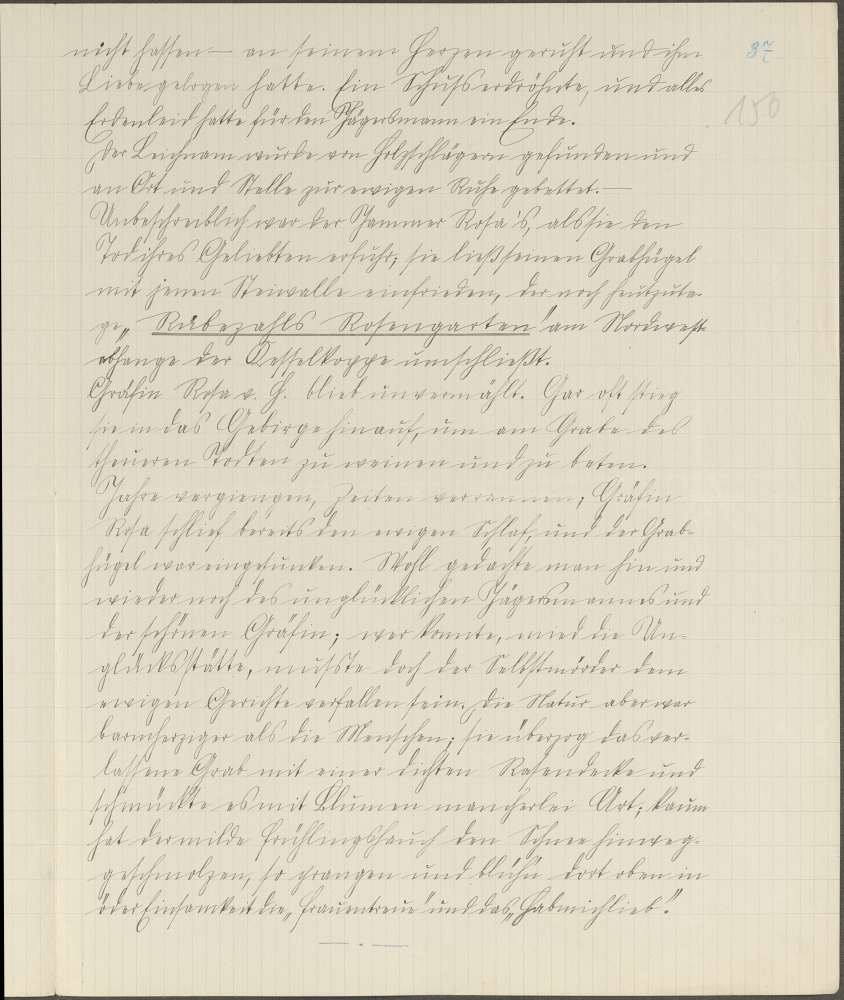 nicht hassen — an seinem Herzen geruht und ihm
Liebe gelogen hatte. Ein Schuß erdröhnte, und alles
Erdenleid hatte für den Jägersmann ein Ende.
150
Der Leichnam wurde von Holzschlägern gefunden und
an Ort und Stelle zur ewigen Ruhe gebettet. —
Unbeschreiblich war der Jammer Rosa's, als sie den
Tod ihres Geliebten erfuhr; sie ließ seinen Grabhügel
mit jenem Steinwalle einfrieden, der noch heutzuta-
ge „Rübezahls Rosengarten" am Nordwest-
abhange der Kesselkoppe umschließt.
Gräfin Rosa v. H. blieb unvermählt. Gar oft stieg
sie in das Gebirge hinauf, um am Grabe des
theueren Todten zu weinen und zu beten.
Jahre vergiengen, Zeiten verrannen; Gräfin
Rosa schlief bereits den ewigen Schlaf, und der Grab-
hügel war eingesunken. Wohl gedachte man hin und
wieder noch des unglücklichen Jägersmannes und
der schönen Gräfin; wer konnte, mied die Un-
glücksstätte, mußte doch der Selbstmörder dem
ewigen Gerichte verfallen sein. Die Natur aber war
barmherziger als die Menschen; sie überzog das ver-
lassene Grab mit einer dichten Rasendecke und
schmückte es mit Blumen mancherlei Art; kaum
hat der milde Frühlingshauch den Schnee hinweg-
geschmolzen, so prangen und blüh'n dort oben in
öder Einsamkeit die „Frauentreue" und das „Habmichlieb".